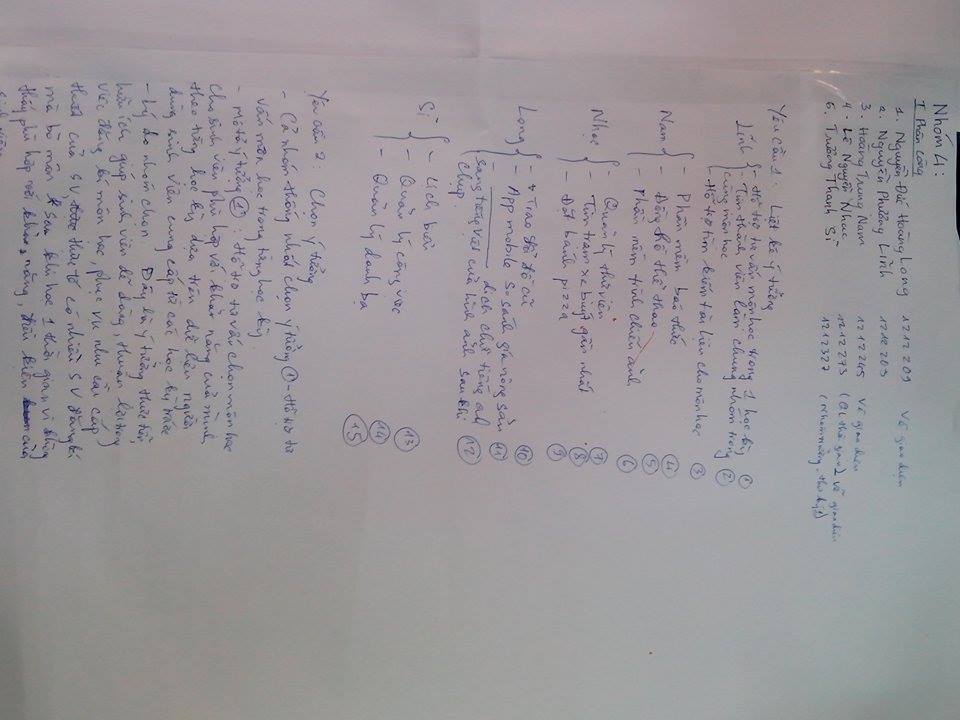 Nhóm 4:
I. Phân công
1. Nguyễn Đỗ Hoàng Long 1212209 Vẽ giao diện
2. Nguyễn Phương Linh 1212203
3. Hoàng Trung Nam 1212245 Vẽ giao diện
4. Lê Nguyễn Nhạc 1212273 vẽ giao diện
5. Trương Thanh Sĩ 1212327 (nhóm trưởng, thư ký)
Yêu cầu 1: Liệt kê ý tưởng
Linh { - Hỗ trợ tư vấn môn học trong 1 học kỳ ①
- Tìm thành viên làm chung nhóm trong ②
cùng môn học
- Hỗ trợ tìm kiếm tài liệu cho môn học ③
Nam { - Phần mềm báo thức ④
- Đồng hồ thể thao ⑤
- Phần mềm tinh chỉnh ảnh ⑥
Nhạc { - Quản lý thư viện ⑦
- Tìm trạm xe buýt gần nhất ⑧
- Đặt bánh pizza ⑨
Long { - Trao đổi đồ cũ ⑩
- App mobile so sánh giá nông sản ⑪
- dịch chữ tiếng anh ⑫
sang tiếng việt của hình ảnh sau khi
chụp
Sĩ { - Lịch bàn ⑬
- Quản lý công việc ⑭
- Quản lý danh bạ ⑮
Yêu cầu 2: Chọn ý tưởng
- Cả nhóm thống nhất chọn ý tưởng ① - Hỗ trợ tư
vấn môn học trong từng học kỳ.
- Mô tả ý tưởng ①: Hỗ trợ tư vấn chọn môn học
cho sinh viên phù hợp với khả năng của mình
theo từng học kỳ dựa trên dữ liệu người
dùng sinh viên cung cấp từ các học kỳ trước
- Lý do nhóm chọn: Đây là ý tưởng thực tiễn
hữu ích giúp sinh viên dễ dàng, thuận lợi trong
việc đăng kí môn học, phục vụ nhu cầu cấp
thiết của SV thực tế có nhiều SV đăng kí
mà bỏ môn sau khi học 1 thời gian vì không
thấy phù hợp với khả năng, điều kiện của
sinh viên